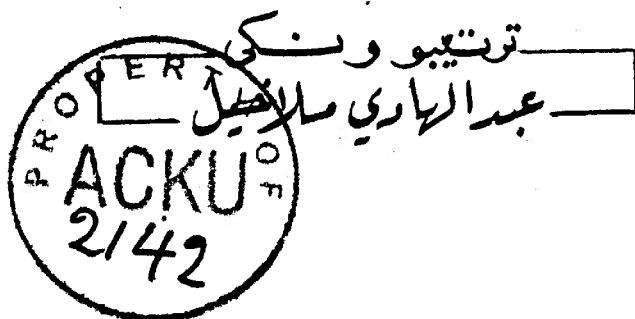 ترتیبوونکی
عبدالهادي ملاخیل
PROPERTY OF
ACKU
2142